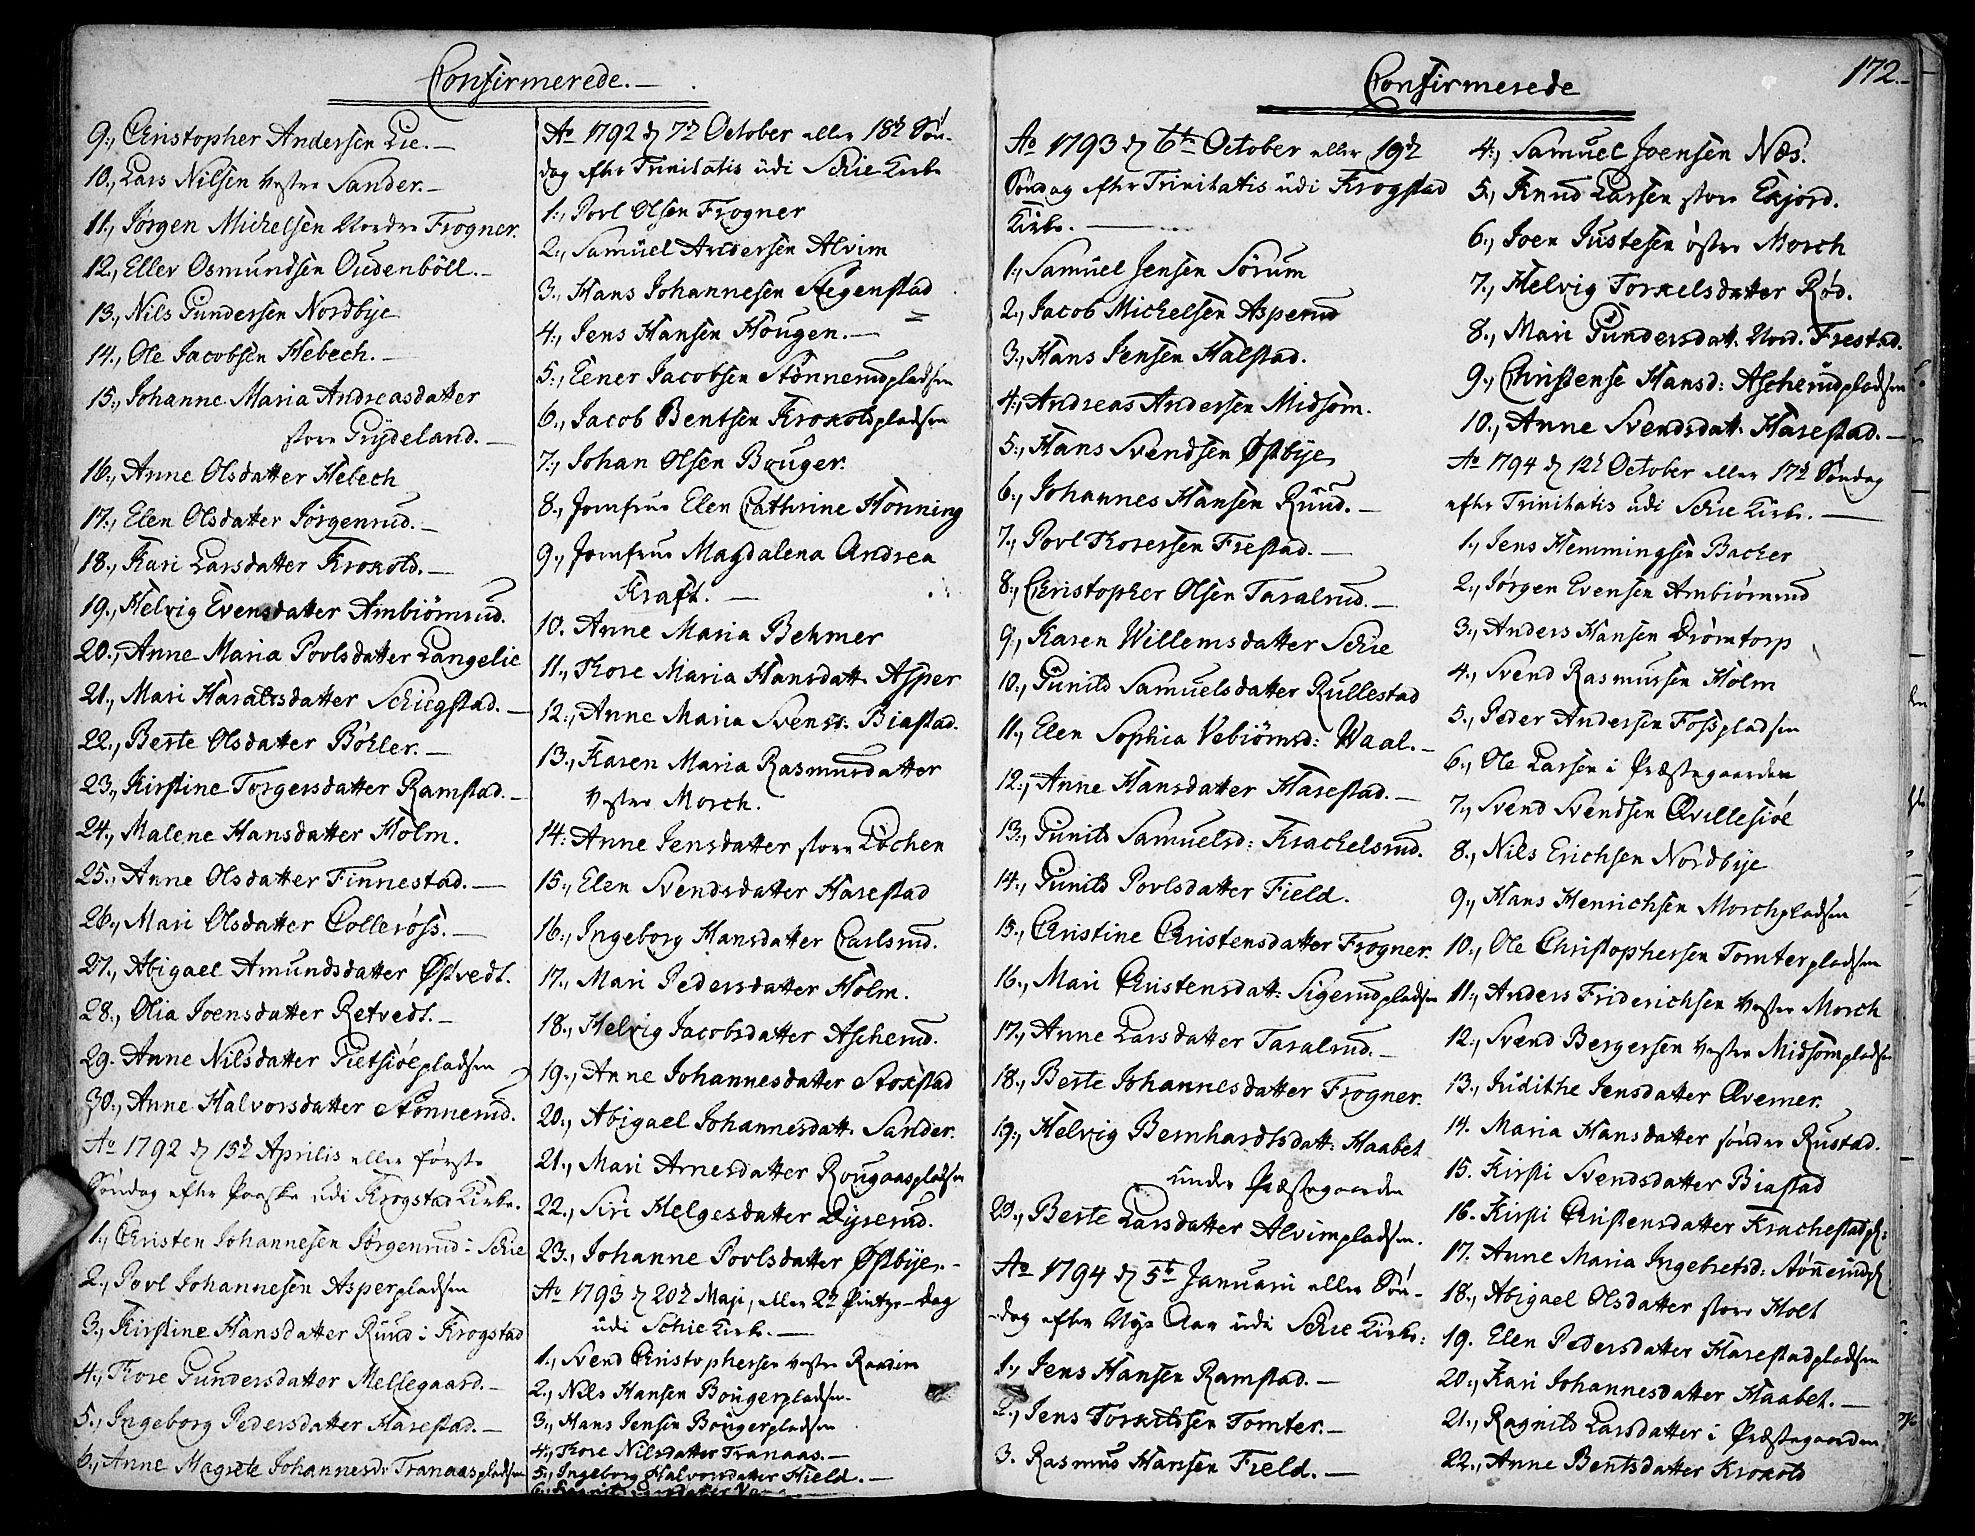 Confirmerede.
9., Christopher Andersen Lie.
10., Lars Nilsen Vestre Sander.
11., Jørgen Michelsen Nordre Frogner.
12., Ellev Osmundsen Oudenböll.
13., Nils Gundersen Nordbÿe
14., Ole Jacobsen Hebech.
15., Johanne Maria Andreasdatter
store Grÿdeland.
16., Anne Olsdatter Hebech
17., Elen Olsdatter Jörgenrud.
18., Kari Larsdatter Kroxold.
19., Helvig Evensdatter Ambiörnrud.
20., Anne Maria Povlsdatter Langelie
21., Mari Haraldsdatter Schiegstad.
22., Berte Olsdatter Böhler.
23., Kirstine Torgersdatter Ramstad.
24., Malene Hansdatter Holm.
25., Anne Olsdatter Finnestad.
26., Mari Olsdatter Colleröss.
27., Abigael Amundsdatter Østvedt.
28., Olia Joensdatter Retvedt.
29. Anne Nilsdatter Gietsiöepladsen
30., Anne Halvorsdatter Stönnerud.
Ao 1792 d 15de Aprilis eller förste
Söndag efter Paaske udi Krogstad Kirke.
1., Christen Johannesen Jörgenrud i Schie
2., Povl Johannesen Asperpladsen
3., Kirstine Hansdatter Ruud i Krogstad
4., Thore Gundersdatter Mellegaard.
5., Ingeborg Pedersdatter Harestad.
6., Anne Magrete Johannesdr Tranaaspladsen
Ao 1792 d 7de October eller 18de Sön-
dag efter Trinitatis udi Schie Kirke
1., Povl Olsen Frogner
2., Samuel Andersen Alvim
3., Hans Johannesen Stegenstad
4., Jens Hansen Hougen.
5., Eener Jacobsen Stönnerudpladsen
6., Jacob Bentsen Kroxoldpladsen
7., Johan Olsen Bouger.
8., Jomfrue Elen Cathrine Honning
9., Jomfrue Magdalena Andrea
Kraft.
10. Anne Maria Behmer
11., Thore Maria Hansdatt. Asper
12., Anne Maria Svensd: Biastad.
13., Karen Maria Rasmusdatter
Vestre Morch.
14. Anne Jensdatter store Löchen
15., Elen Svendsdatter Harestad
16., Ingeborg Hansdatter Carlsrud.
17., Mari Pedersdatter Holm.
18., Helvig Jacobsdatter Ascherud.
19., Anne Johannesdatter Stoxstad
20., Abigael Johannesdatt. Sander.
21., Mari Arnesdatter Rougaaspladsen
22., Siri Helgesdatter Dÿserud.
23., Johanne Povlsdatter Østbÿe.
Ao 1793 d 20de Maji, eller 2de Pintze-dag
udi Schie Kirke.
1., Svend Christophersen Vestre Raadim
2., Nils Hansen Bougerpladsen
3., Hans Jensen Bougerpladsen
4., Thore Nilsdatter Tranaas.
5., Ingeborg Halvorsdatter Hield.
Confirmerede
172.
Ao 1793 d 6te October eller 19de
Söndag efter Trinitatis udi Krogstad
Kirke.
1., Samuel Jensen Sörum
2., Jacob Michelsen Asperud
3., Hans Jensen Halstad.
4., Andreas Andersen Midsom.
5., Hans Svendsen Østbÿe
6., Johannes Hansen Ruud.
7., Povl Thoresen Frestad.
8., Christopher Olsen Taralrud.
9., Karen Willemsdatter Schie
10., Gunild Samuelsdatter Rullestad
11., Elen Sophia Vebiörnsd: Waal.
12., Anne Hansdatter Harestad.
13., Gunild Samuelsd: Krachelsrud.
14., Gunild Povlsdatter Field.
15., Christine Christensdatter Frogner.
16., Mari Christensdatt: Sigerudpladsen
17., Anne Larsdatter Taralrud.
18., Berte Johannesdatter Frogner.
19., Helvig Bernhardtsdatt: Haabet
under Præstegaarden
20., Berte Larsdatter Alvimpladsen.
Ao 1794 d 5te Januarii eller Sön-
-dag efter Nÿe Aar udi Schie Kirke:
1., Jens Hansen Ramstad.
2., Jens Torkildsen Tomter.
3. Rasmus Hansen Field.
4., Samuel Joensen Næs.
5., Knud Larsen store Exjord.
6., Joen Justesen östre Morch
7., Helvig Torkelsdatter Röd.
8., Mari Gundersdatt. Nord. Frestad.
9., Christense Hansd: Ascherudpladsen
10., Anne Svendsdatt. Harestad.
Ao 1794 d 12te October eller 17de Söndag
efter Trinitatis udi Schie Kirke.
1., Jens Hemmingsen Bacher
2., Jörgen Evensen Ambiörnrud
3., Anders Hansen Drömtorp
4., Svend Rasmussen Holm
5., Peder Andersen Fosspladsen
6., Ole Larsen i Præstegaarden
7., Svend Svendsen Qvillesiöe
8., Nils Erichsen Nordbÿe
9., Hans Henrichsen Morchpladsen
10., Ole Christophersen Tomterpladsen
11., Anders Friderichsen Vestre Morch
12., Svend Bergersen Vestre Midsompladsen
13., Judithe Jensdatter Qverner.
14. Maria Hansdatter söndre Rustad.
15. Kirsti Svendsdatter Biastad
16. Kirsti Christensdatter Krachestadpl:
17. Anne Maria Ingebretsd: Stönnerudpl
18., Abigael Olsdatter store Holt
19. Elen Pedersdatter Harestadpladsen
20., Kari Johannesdatter Haabet.
21., Ragnild Larsdatter i Præstegaarden
22., Anne Bentsdatter Kroxold